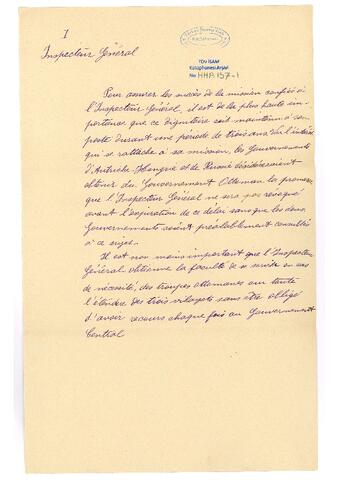 I
Inspecteur Général
TDV İSAM
Kütüphanesi Arşivi
No HHP. 157-1
Pour assurer le succès de la mission confiée à
l'Inspecteur Général, il est de la plus haute im-
portance que ce dignitaire soit maintenu à son
poste durant une période de trois ans. Vu l'intérêt
qui se rattache à sa mission, les Gouvernements
d'Autriche-Hongrie et de Russie désireraient
obtenir du Gouvernement Ottoman la promesse
que l'Inspecteur Général ne sera pas révoqué
avant l'expiration de ce délai sans que les deux
Gouvernements soient préalablement consultés
à ce sujet.
Il est non moins important que l'Inspecteur
Général obtienne la faculté de se servir en cas
de nécessité, des troupes ottomanes sur toute
l'étendue des trois vilayets sans être obligé
d'avoir recours chaque fois au Gouvernement
Central